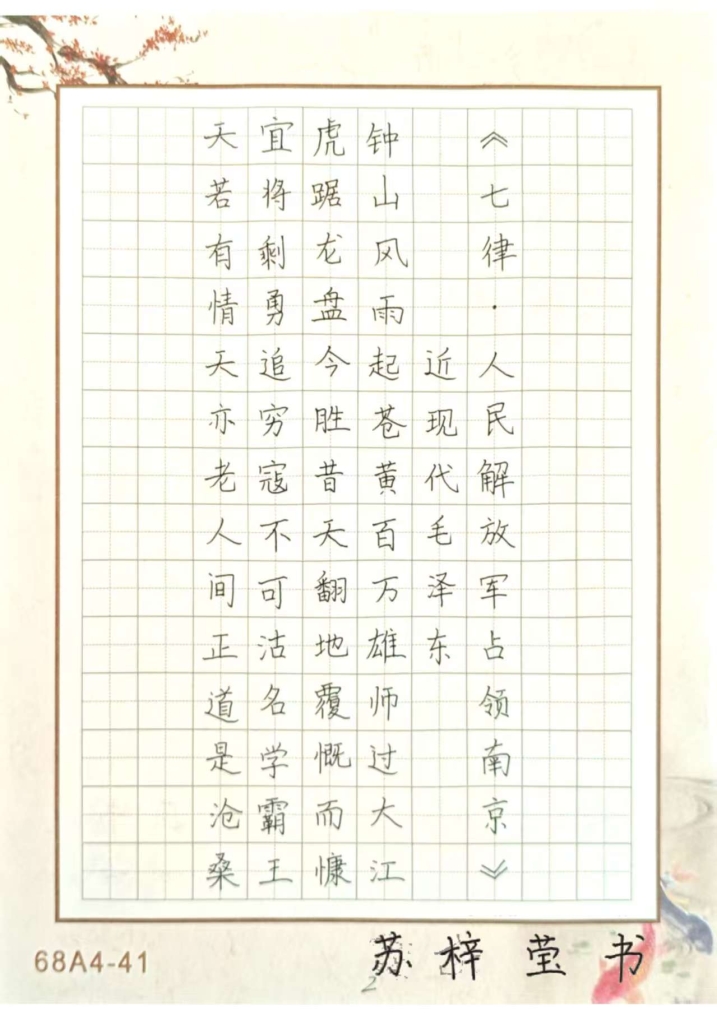 《七律·人民解放军占领南京》
近现代毛泽东
钟山风雨起苍黄百万雄师过大江
虎踞龙盘今胜昔天翻地覆慨而慷
宜将剩勇追穷寇不可沽名学霸王
天若有情天亦老人间正道是沧桑
苏梓莹书
68A4-41
2